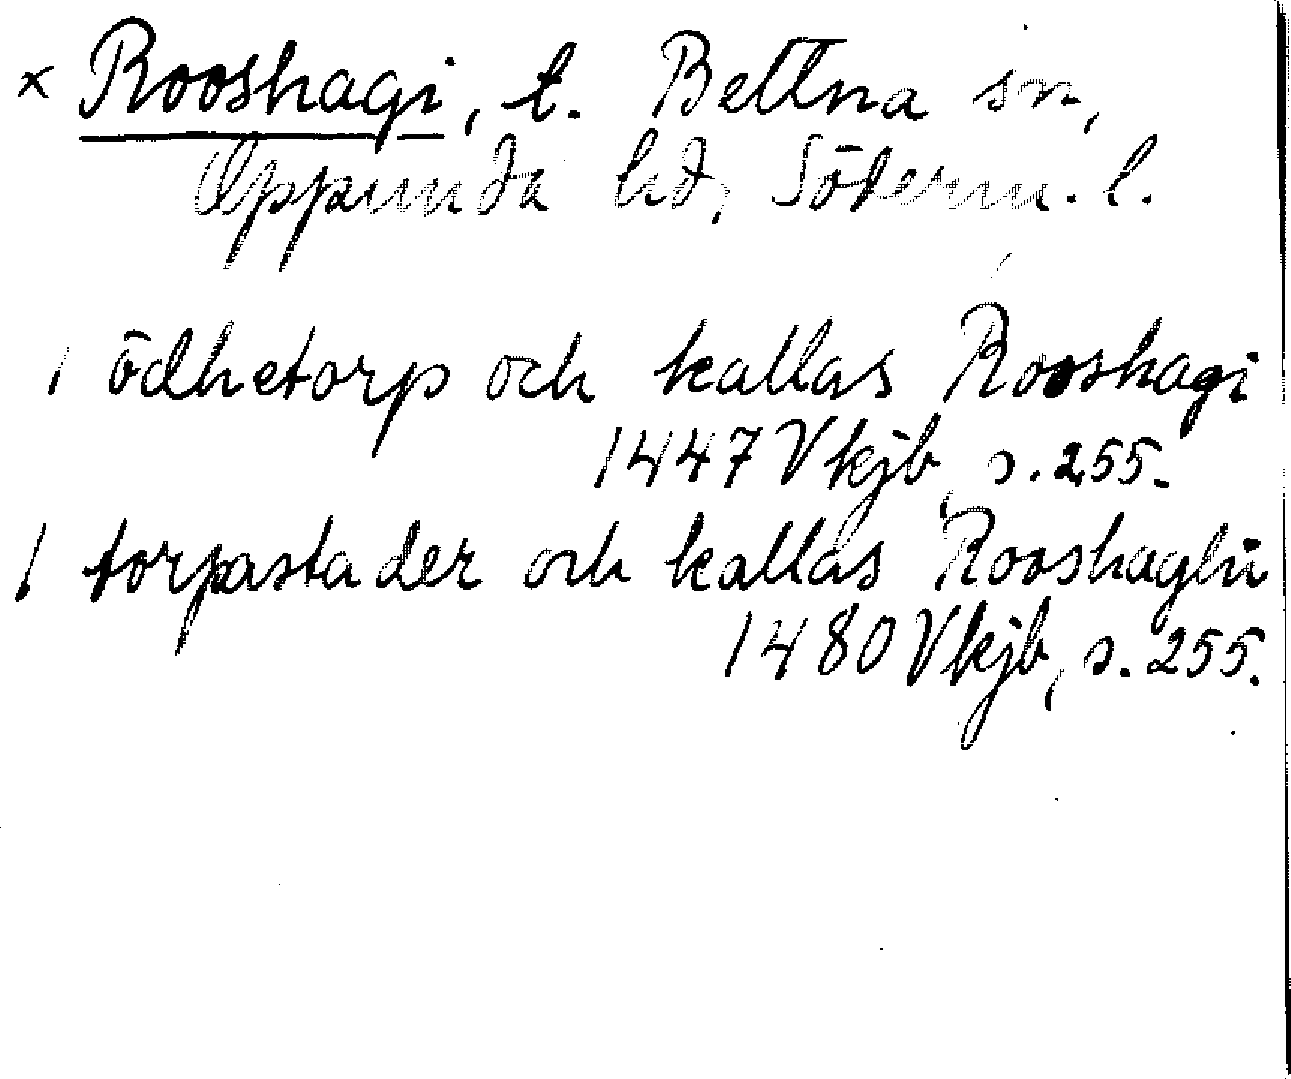 x Rooshagi, t. Bettna sn,
Oppunda hd, Söderm. l.
1 ödhetorp och kallas Rooshagi
1447 Vkjb, s. 255.
1 torpastader och kallas Rooshaghi
1480 Vkjb, s. 255.